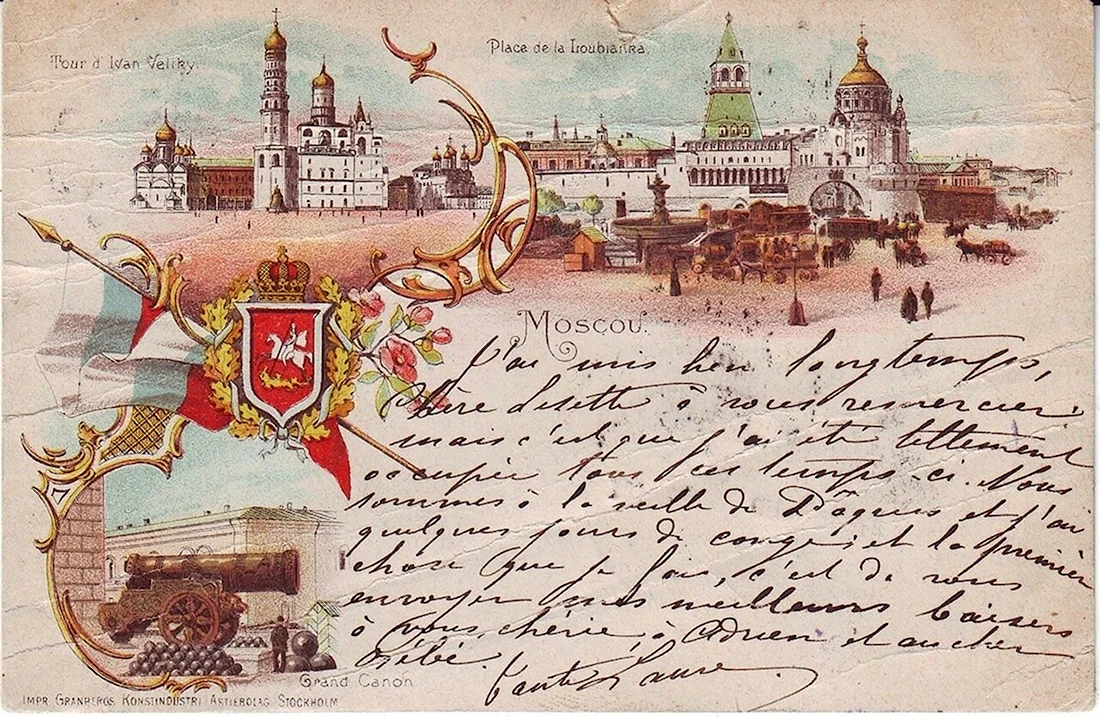 Tour d' Ivan Veliky.
Place de la Loubianka.
Moscou.
J'ai mis bien longtemps,
chère Lisette à vous remercier
mais c'est que j'ai été tellement
occupée tous ces temps-ci. Nous
sommes à la veille de Pâques et j'ai
quelques jours de congé; et la première
chose que je fais, c'est de vous
envoyer mes meilleurs baisers
à vous, chérie, à Adrien et au cher
Bébé.
Tante Laure
Grand Canon.
IMPR. GRANBERGS KONSTINDUSTRI AKTIEBOLAG STOCKHOLM